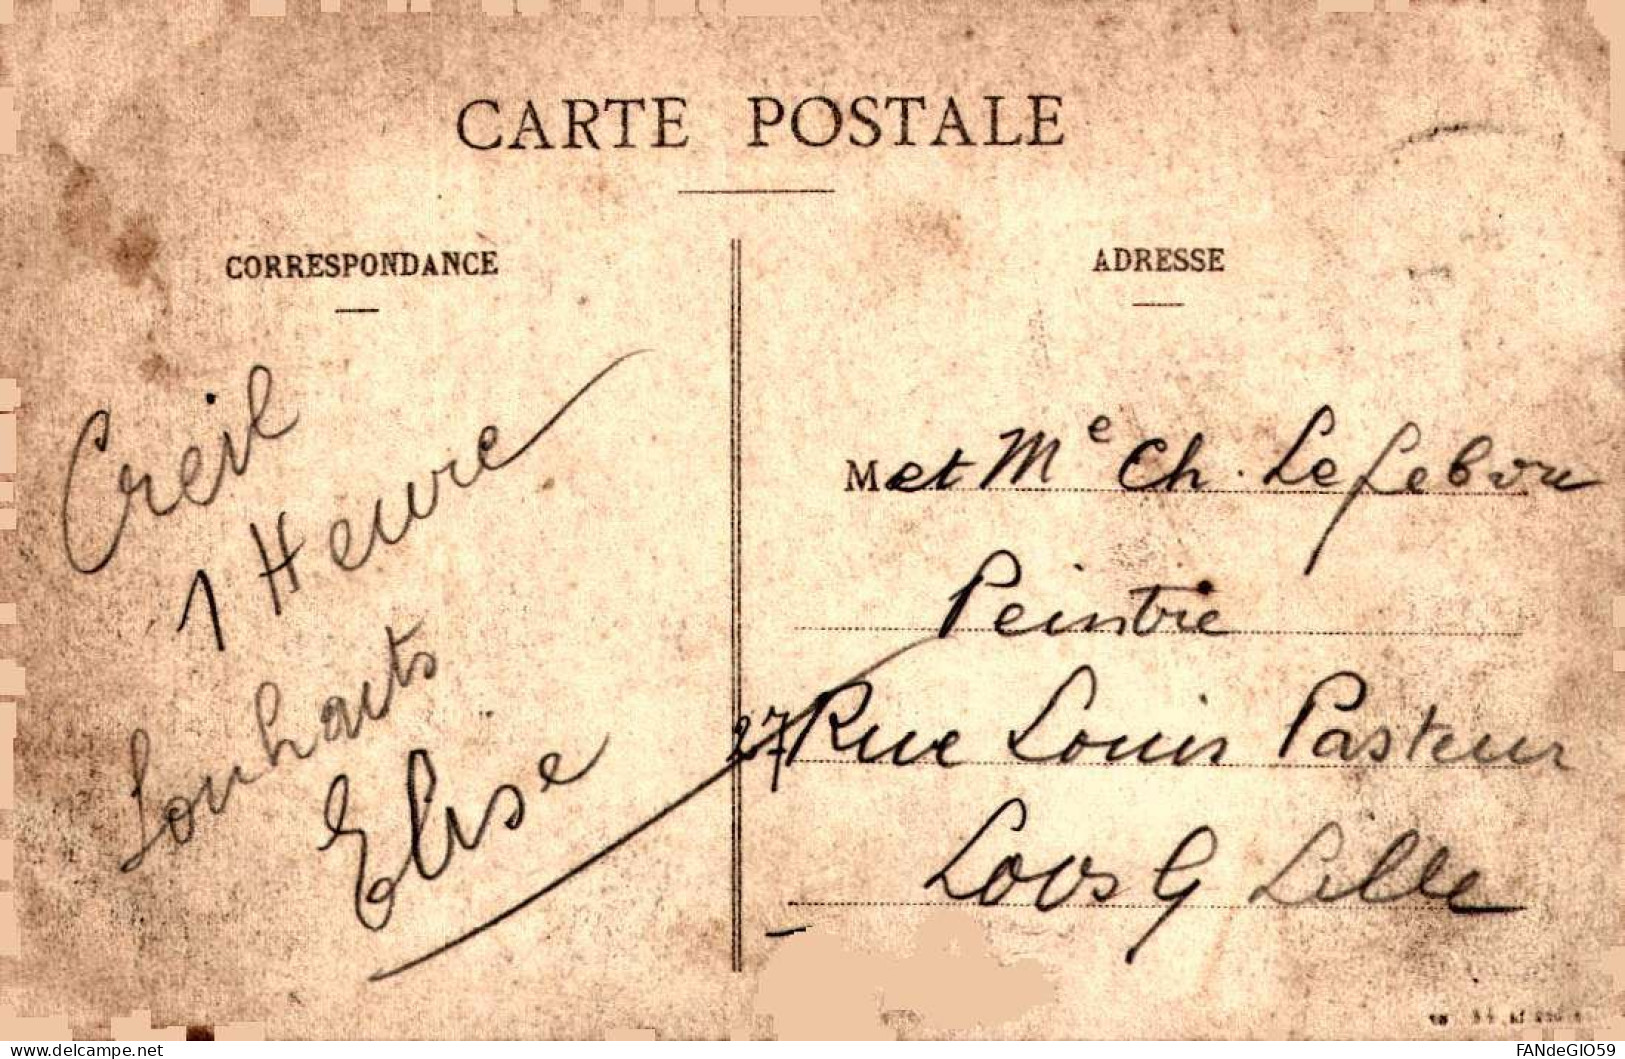 CARTE POSTALE
CORRESPONDANCE
Creil
1 Heure
Souhaits
Elise
ADRESSE
M et Me Ch. Lefebvre
Peintre
27 Rue Louis Pasteur
Loos G Lille
www.delcampe.net
FANdeGIO59